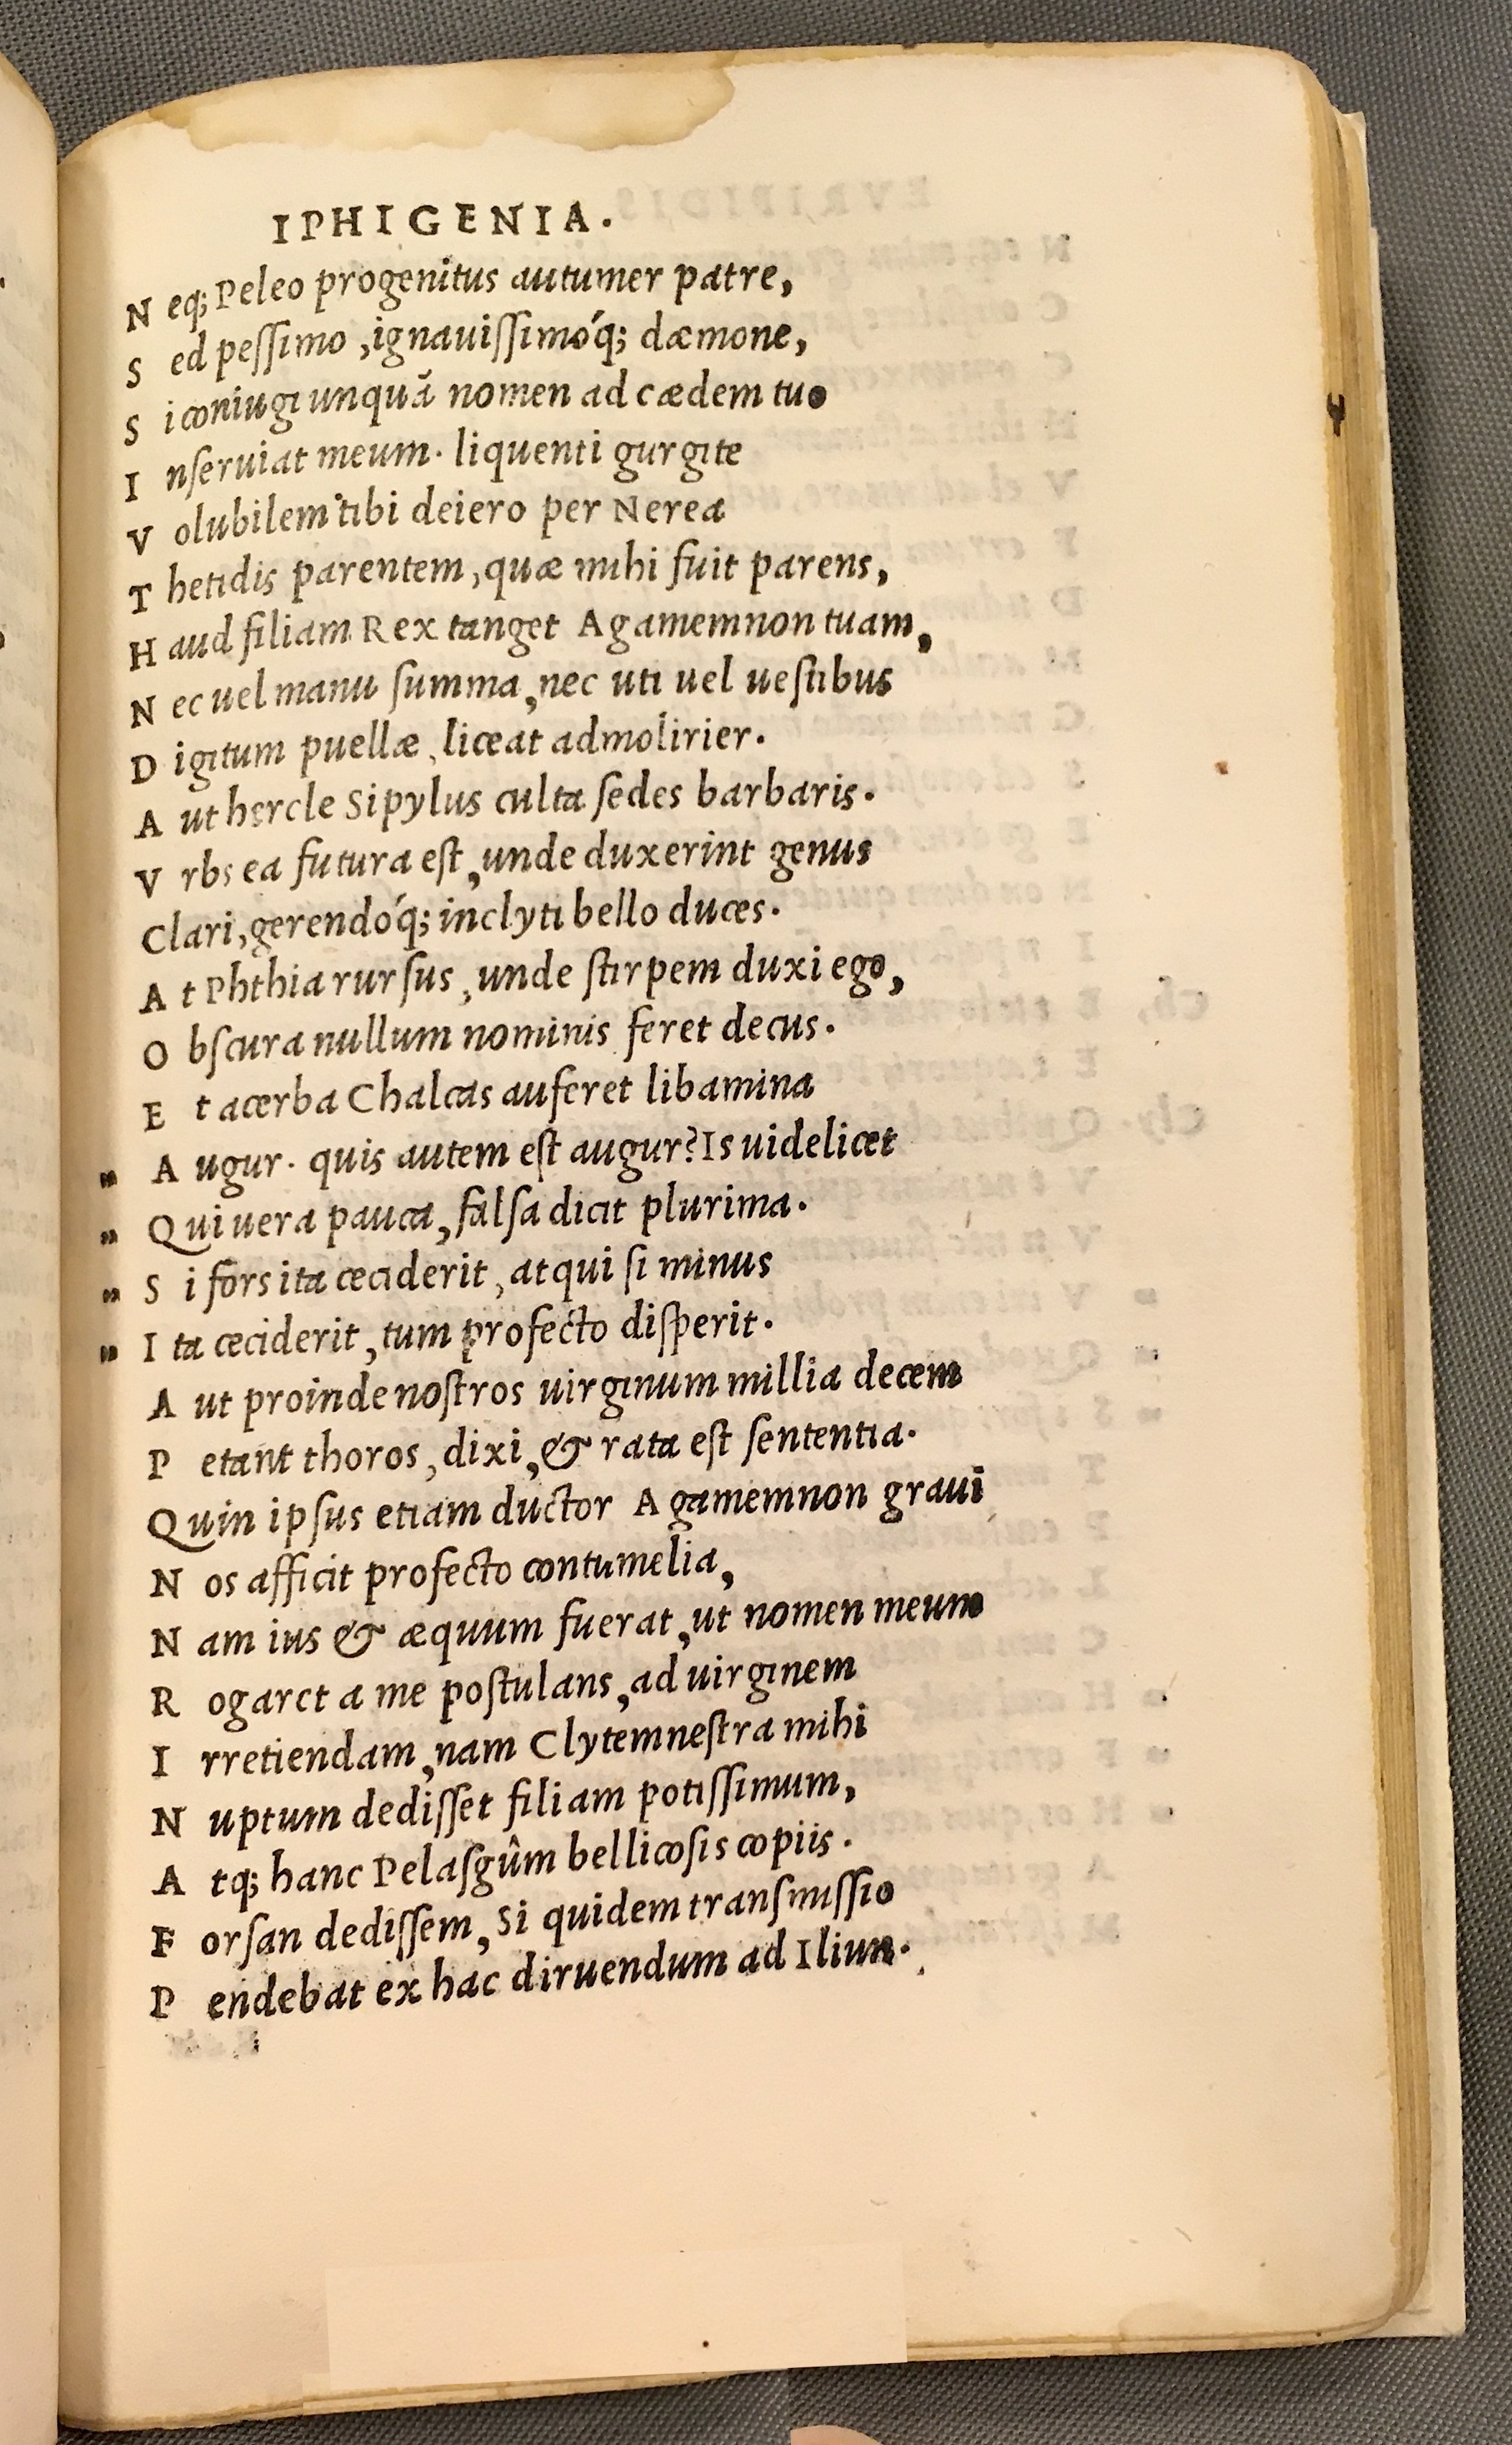 IPHIGENIA.
N eq; Peleo progenitus autumer patre,
S ed pessimo, ignauissimóq; dæmone,
S i coniugi unquã nomen ad cædem tuo
I nseruiat meum. liquenti gurgite
V olubilem tibi deiero per Nerea
T hetidis parentem, quæ mihi fuit parens,
H aud filiam Rex tanget Agamemnon tuam,
N ec uel manu summa, nec uti uel uestibus
D igitum puellæ, liceat admolirier.
A ut hercle Sipylus culta sedes barbaris.
V rbs ea futura est, unde duxerint genus
Clari, gerendóq; inclyti bello duces.
A t Phthia rursus, unde stirpem duxi ego,
O bscura nullum nominis feret decus.
E t acerba Chalcas auferet libamina
" A ugur. quis autem est augur? Is uidelicet
" Q ui uera pauca, falsa dicit plurima.
" S i fors ita ceciderit, at qui si minus
" I ta ceciderit, tum profecto disperit.
A ut proinde nostros uirginum millia decem
P etant thoros, dixi, & rata est sententia.
Q uin ipsus etiam ductor Agamemnon graui
N os afficit profecto contumelia,
N am ius & æquum fuerat, ut nomen meum
R ogaret a me postulans, ad uirginem
I rretiendam, nam Clytemnestra mihi
N uptum dedisset filiam potissimum,
A tq; hanc Pelasgûm bellicosis copiis.
F orsan dedissem, Si quidem transmissio
P endebat ex hac diruendum ad Ilium.